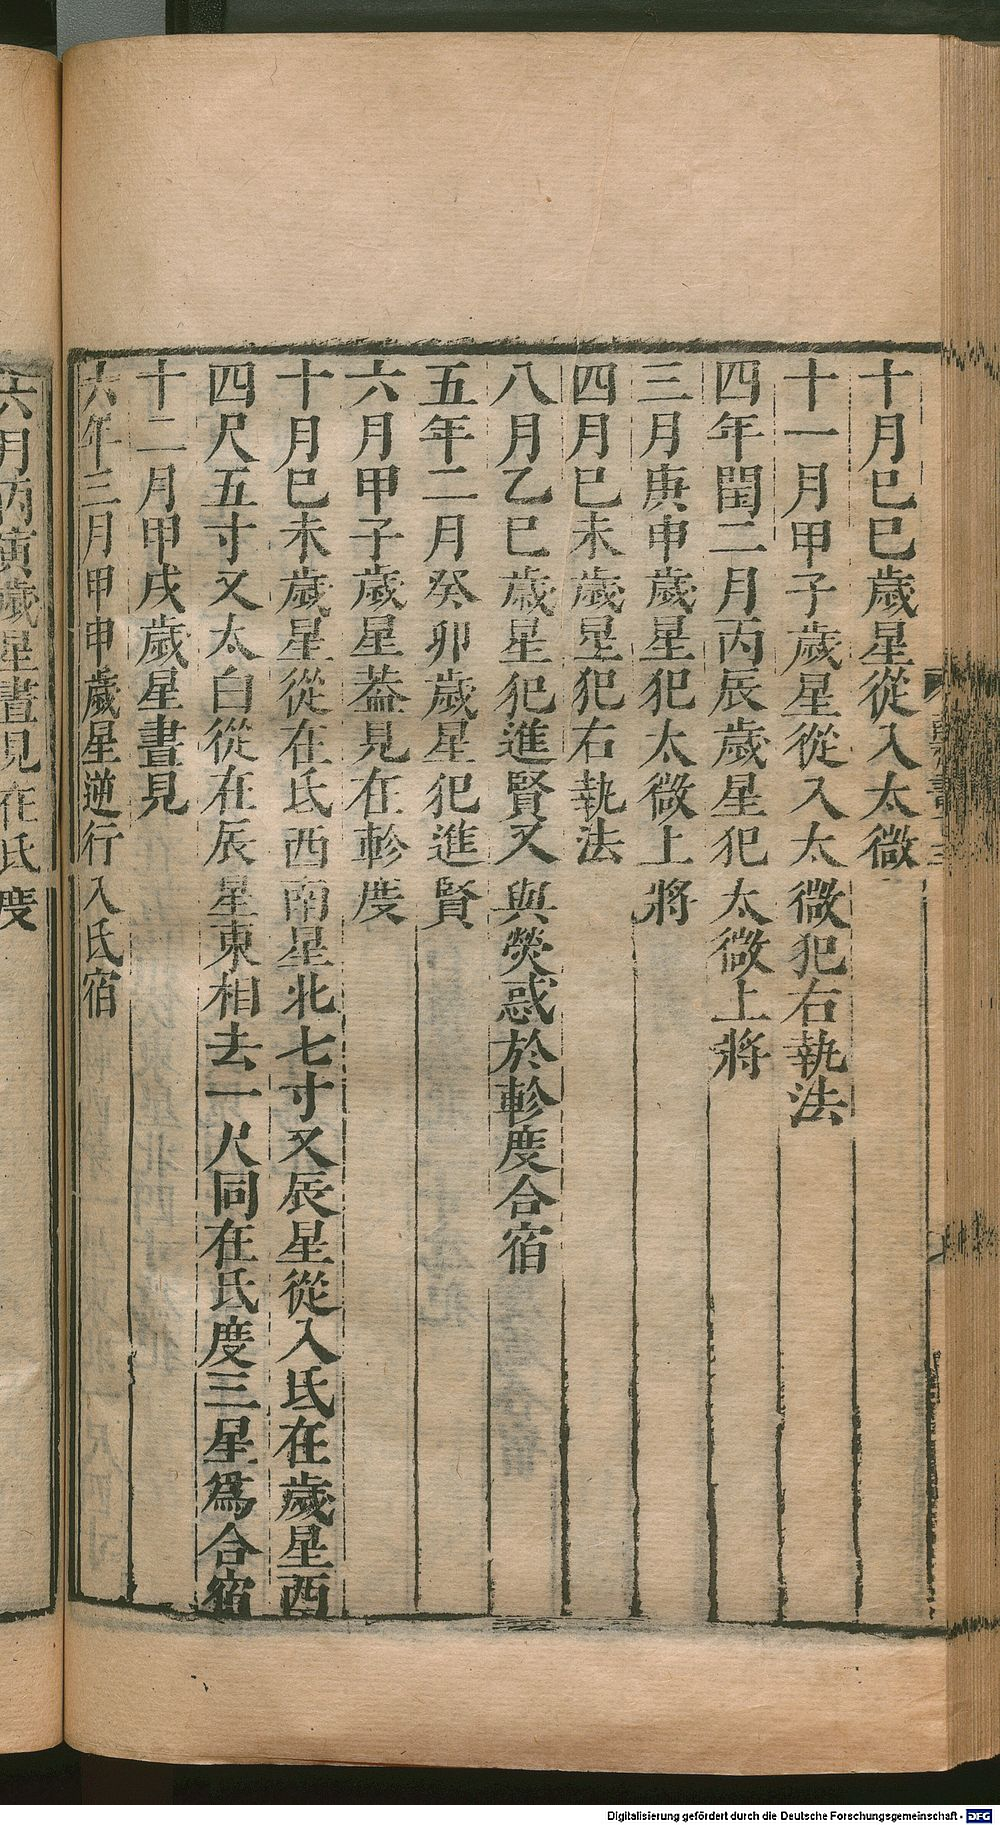 十月巳巳歲星從入太微
十一月甲子歲星從入太微犯右執法
四年閏二月丙辰歲星犯太微上將
三月庚申歲星犯太微上將
四月巳未歲星犯右執法
八月乙巳歲星犯進賢又與熒惑於軫度合宿
五年二月癸卯歲星犯進賢
六月甲子歲星晝見在軫度
十月巳未歲星從在氐西南星北七寸又辰星從入氐在歲星西
四尺五寸又太白從在辰星東相去一尺同在氐度三星爲合宿
十二月甲戌歲星晝見
六年三月甲申歲星逆行入氐宿
六月丙寅歲星晝見在氐度
Digitalisierung gefördert durch die Deutsche Forschungsgemeinschaft - DFG